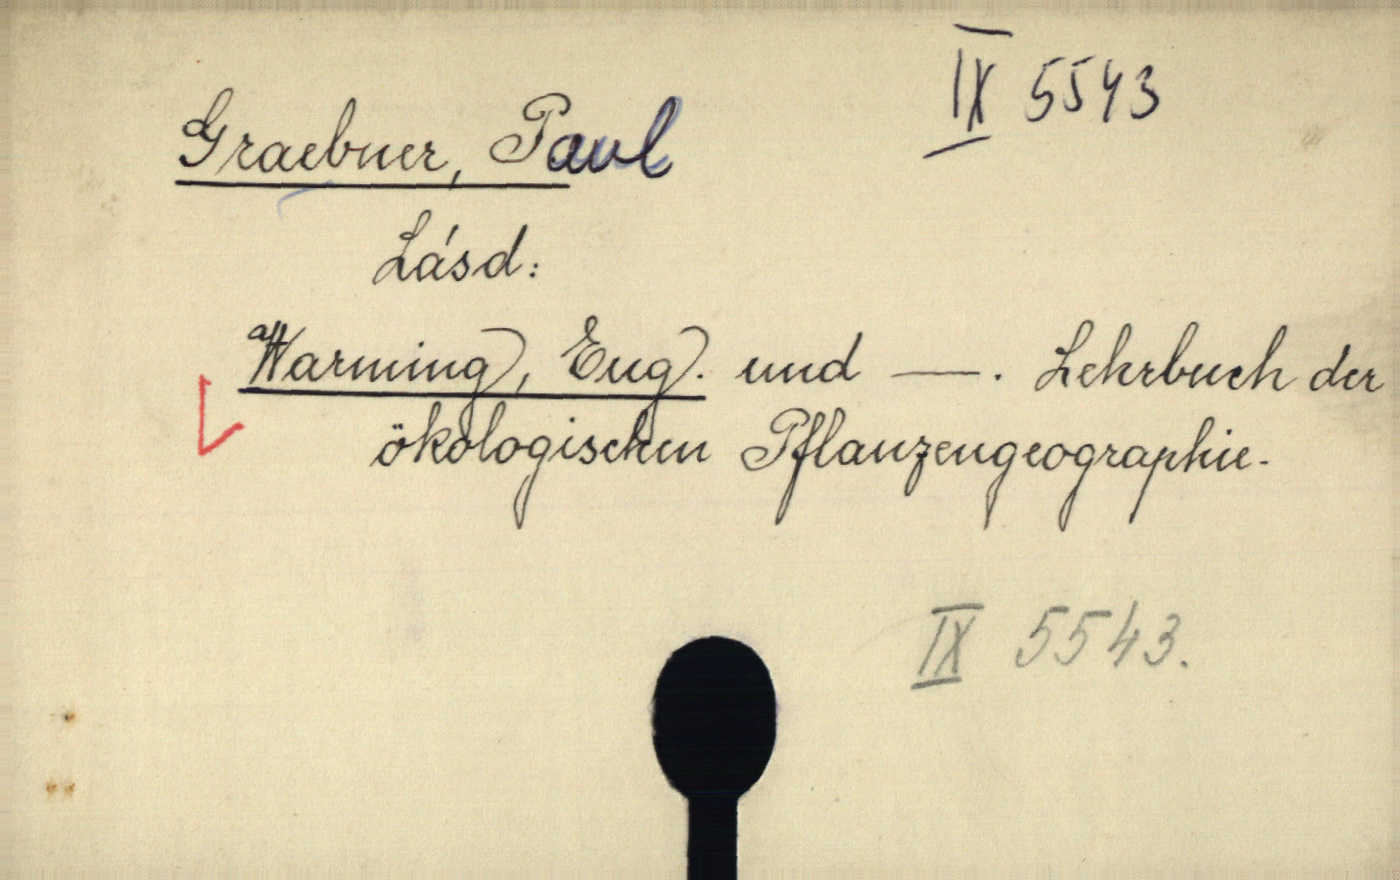 IX 5543
Graebner, Paul
Lásd:
Warming, Eug. und —. Lehrbuch der
ökologischen Pflanzengeographie.
IX 5543.